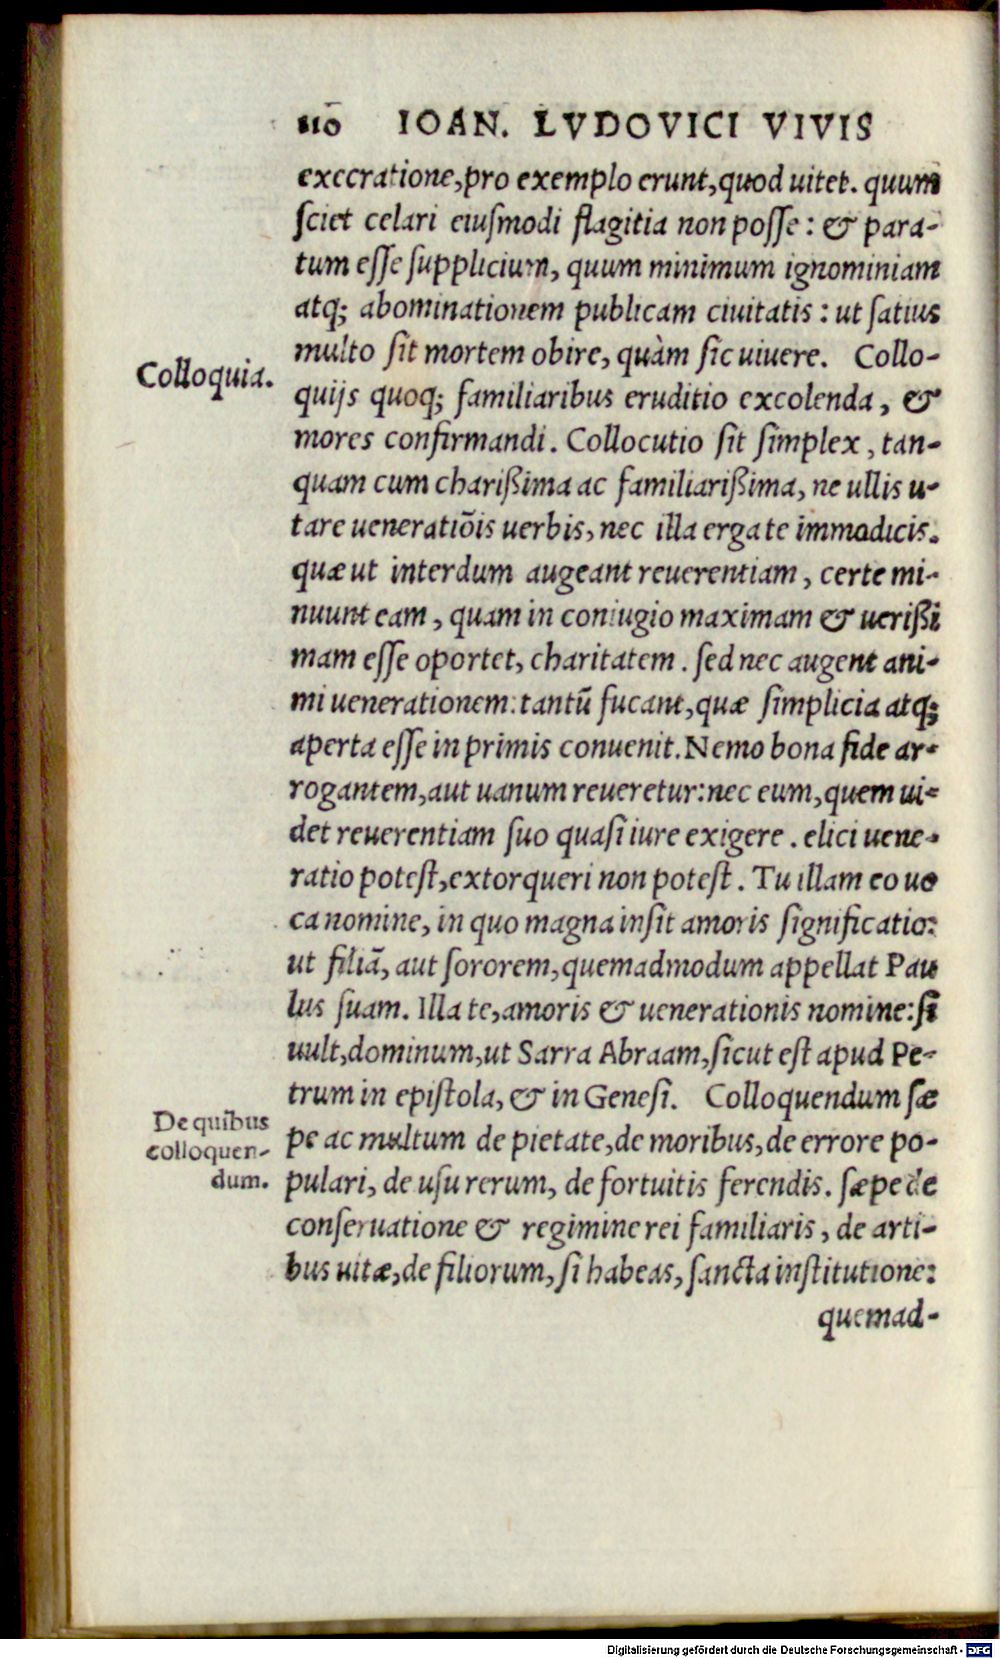 110 IOAN. LVDOVICI VIVIS
execratione, pro exemplo erunt, quod uitet. quum
ſciet celari eiuſmodi flagitia non poſſe: & para-
tum eſſe ſupplicium, quum minimum ignominiam
atq; abominationem publicam ciuitatis: ut ſatius
multo ſit mortem obire, quàm ſic uiuere. Collo-
Colloquia.
quijs quoq; familiaribus eruditio excolenda, &
mores confirmandi. Collocutio ſit ſimplex, tan-
quam cum charißima ac familiarißima, ne ullis u-
tare ueneratiõis uerbis, nec illa erga te immodicis.
quæ ut interdum augeant reuerentiam, certe mi-
nuunt eam, quam in coniugio maximam & uerißi
mam eſſe oportet, charitatem. ſed nec augent ani-
mi uenerationem: tantũ fucant, quæ ſimplicia atq;
aperta eſſe in primis conuenit. Nemo bona fide ar-
rogantem, aut uanum reueretur: nec eum, quem ui-
det reuerentiam ſuo quaſi iure exigere. elici uene-
ratio poteſt, extorqueri non poteſt. Tu illam eo uo
ca nomine, in quo magna inſit amoris ſignificatio:
ut filiã, aut ſororem, quemadmodum appellat Pau
lus ſuam. Illa te, amoris & uenerationis nomine: ſi
uult, dominum, ut Sarra Abraam, ſicut eſt apud Pe-
trum in epiſtola, & in Geneſi. Colloquendum ſæ
De quibus
colloquen-
dum.
pe ac multum de pietate, de moribus, de errore po-
pulari, de uſu rerum, de fortuitis ferendis. ſæpe de
conſeruatione & regimine rei familiaris, de arti-
bus uitæ, de filiorum, ſi habeas, ſancta inſtitutione:
quemad-
Digitalisierung gefördert durch die Deutsche Forschungsgemeinschaft - DFG